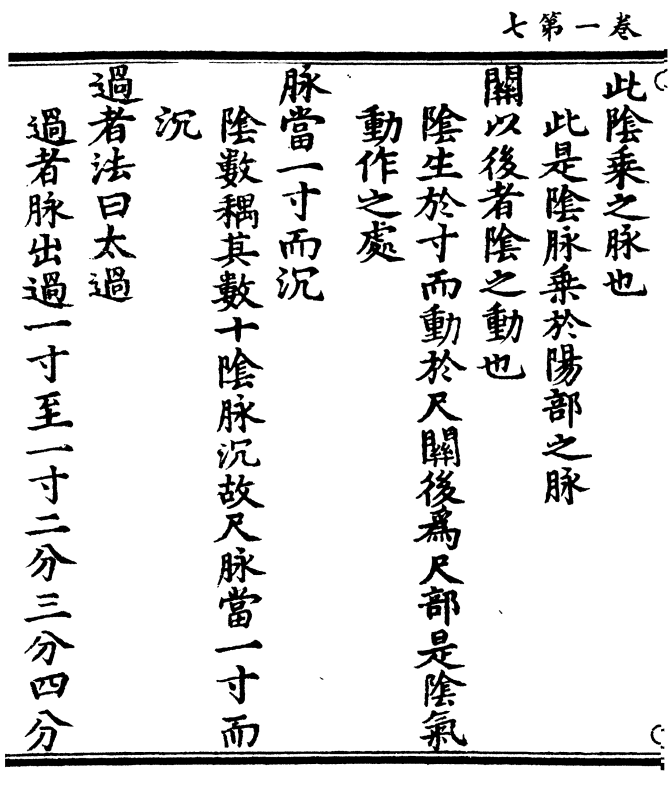 卷一第七
此陰乘之脉也
此是陰脉乘於陽部之脉
關以後者陰之動也
陰生於寸而動於尺關後為尺部是陰氣
動作之處
脉當一寸而沉
陰數耦其數十陰脉沉故尺脉當一寸而
沉
過者法曰太過
過者脉出過一寸至一寸二分三分四分